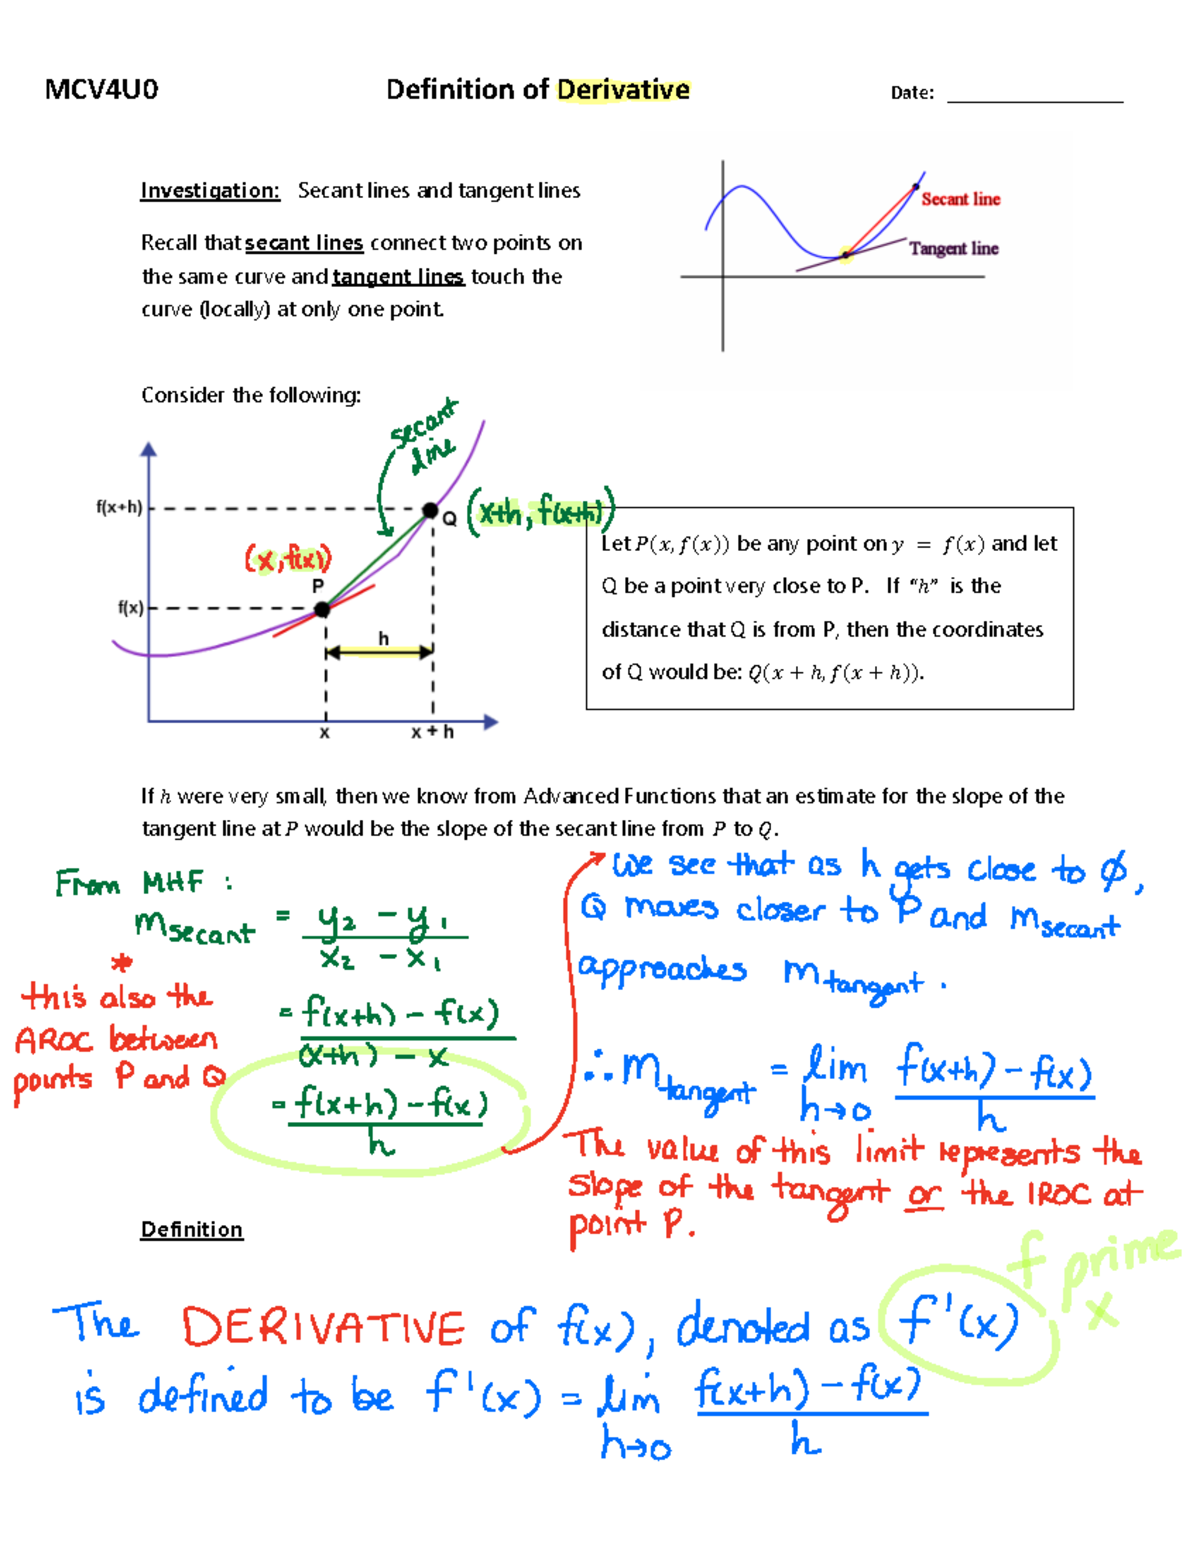 MCV4U0 Definition of Derivative Date:
Investigation: Secant lines and tangent lines
Recall that secant lines connect two points on
the same curve and tangent lines touch the
curve (locally) at only one point.
Secant line
Tangent line
Consider the following:
secant
line
f(x+h)
Q (x+h, f(x+h))
(x, f(x))
P
f(x)
h
x x + h
Let P(x, f(x)) be any point on y = f(x) and let
Q be a point very close to P. If “h” is the
distance that Q is from P, then the coordinates
of Q would be: Q(x + h, f(x + h)).
If h were very small, then we know from Advanced Functions that an estimate for the slope of the
tangent line at P would be the slope of the secant line from P to Q.
From MHF :
m secant = y2 - y1
x2 - x1
= f(x+h) - f(x)
(x+h) - x
= f(x+h) - f(x)
h
*
this also the
AROC between
points P and Q
We see that as h gets close to 0,
Q moves closer to P and m secant
approaches m tangent.
∴ m tangent = lim f(x+h) - f(x)
h→0 h
The value of this limit represents the
slope of the tangent or the IROC at
point P.
Definition
f prime
x
The DERIVATIVE of f(x), denoted as f'(x)
is defined to be f'(x) = lim f(x+h) - f(x)
h→0 h